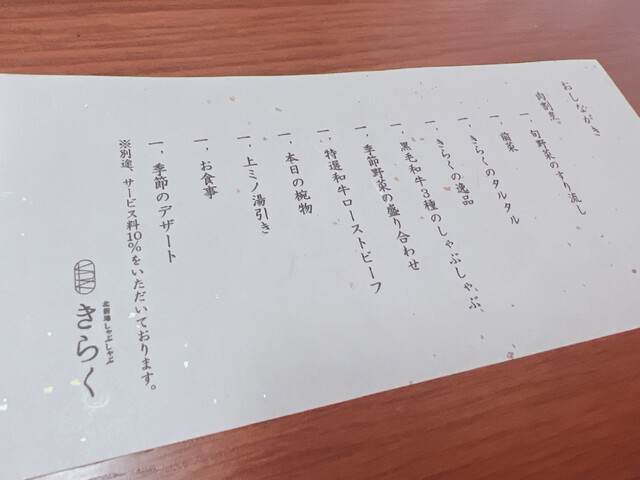 おしながき
肉割烹
一、旬野菜のすり流し
一、前菜
一、きらくのタルタル
一、きらくの逸品
一、黒毛和牛3種のしゃぶしゃぶ、
一、季節野菜の盛り合わせ
一、特選和牛ローストビーフ
一、本日の椀物
一、上ミノ湯引き
一、お食事
一、季節のデザート
※別途、サービス料10%をいただいております。
北新地しゃぶしゃぶ
きらく